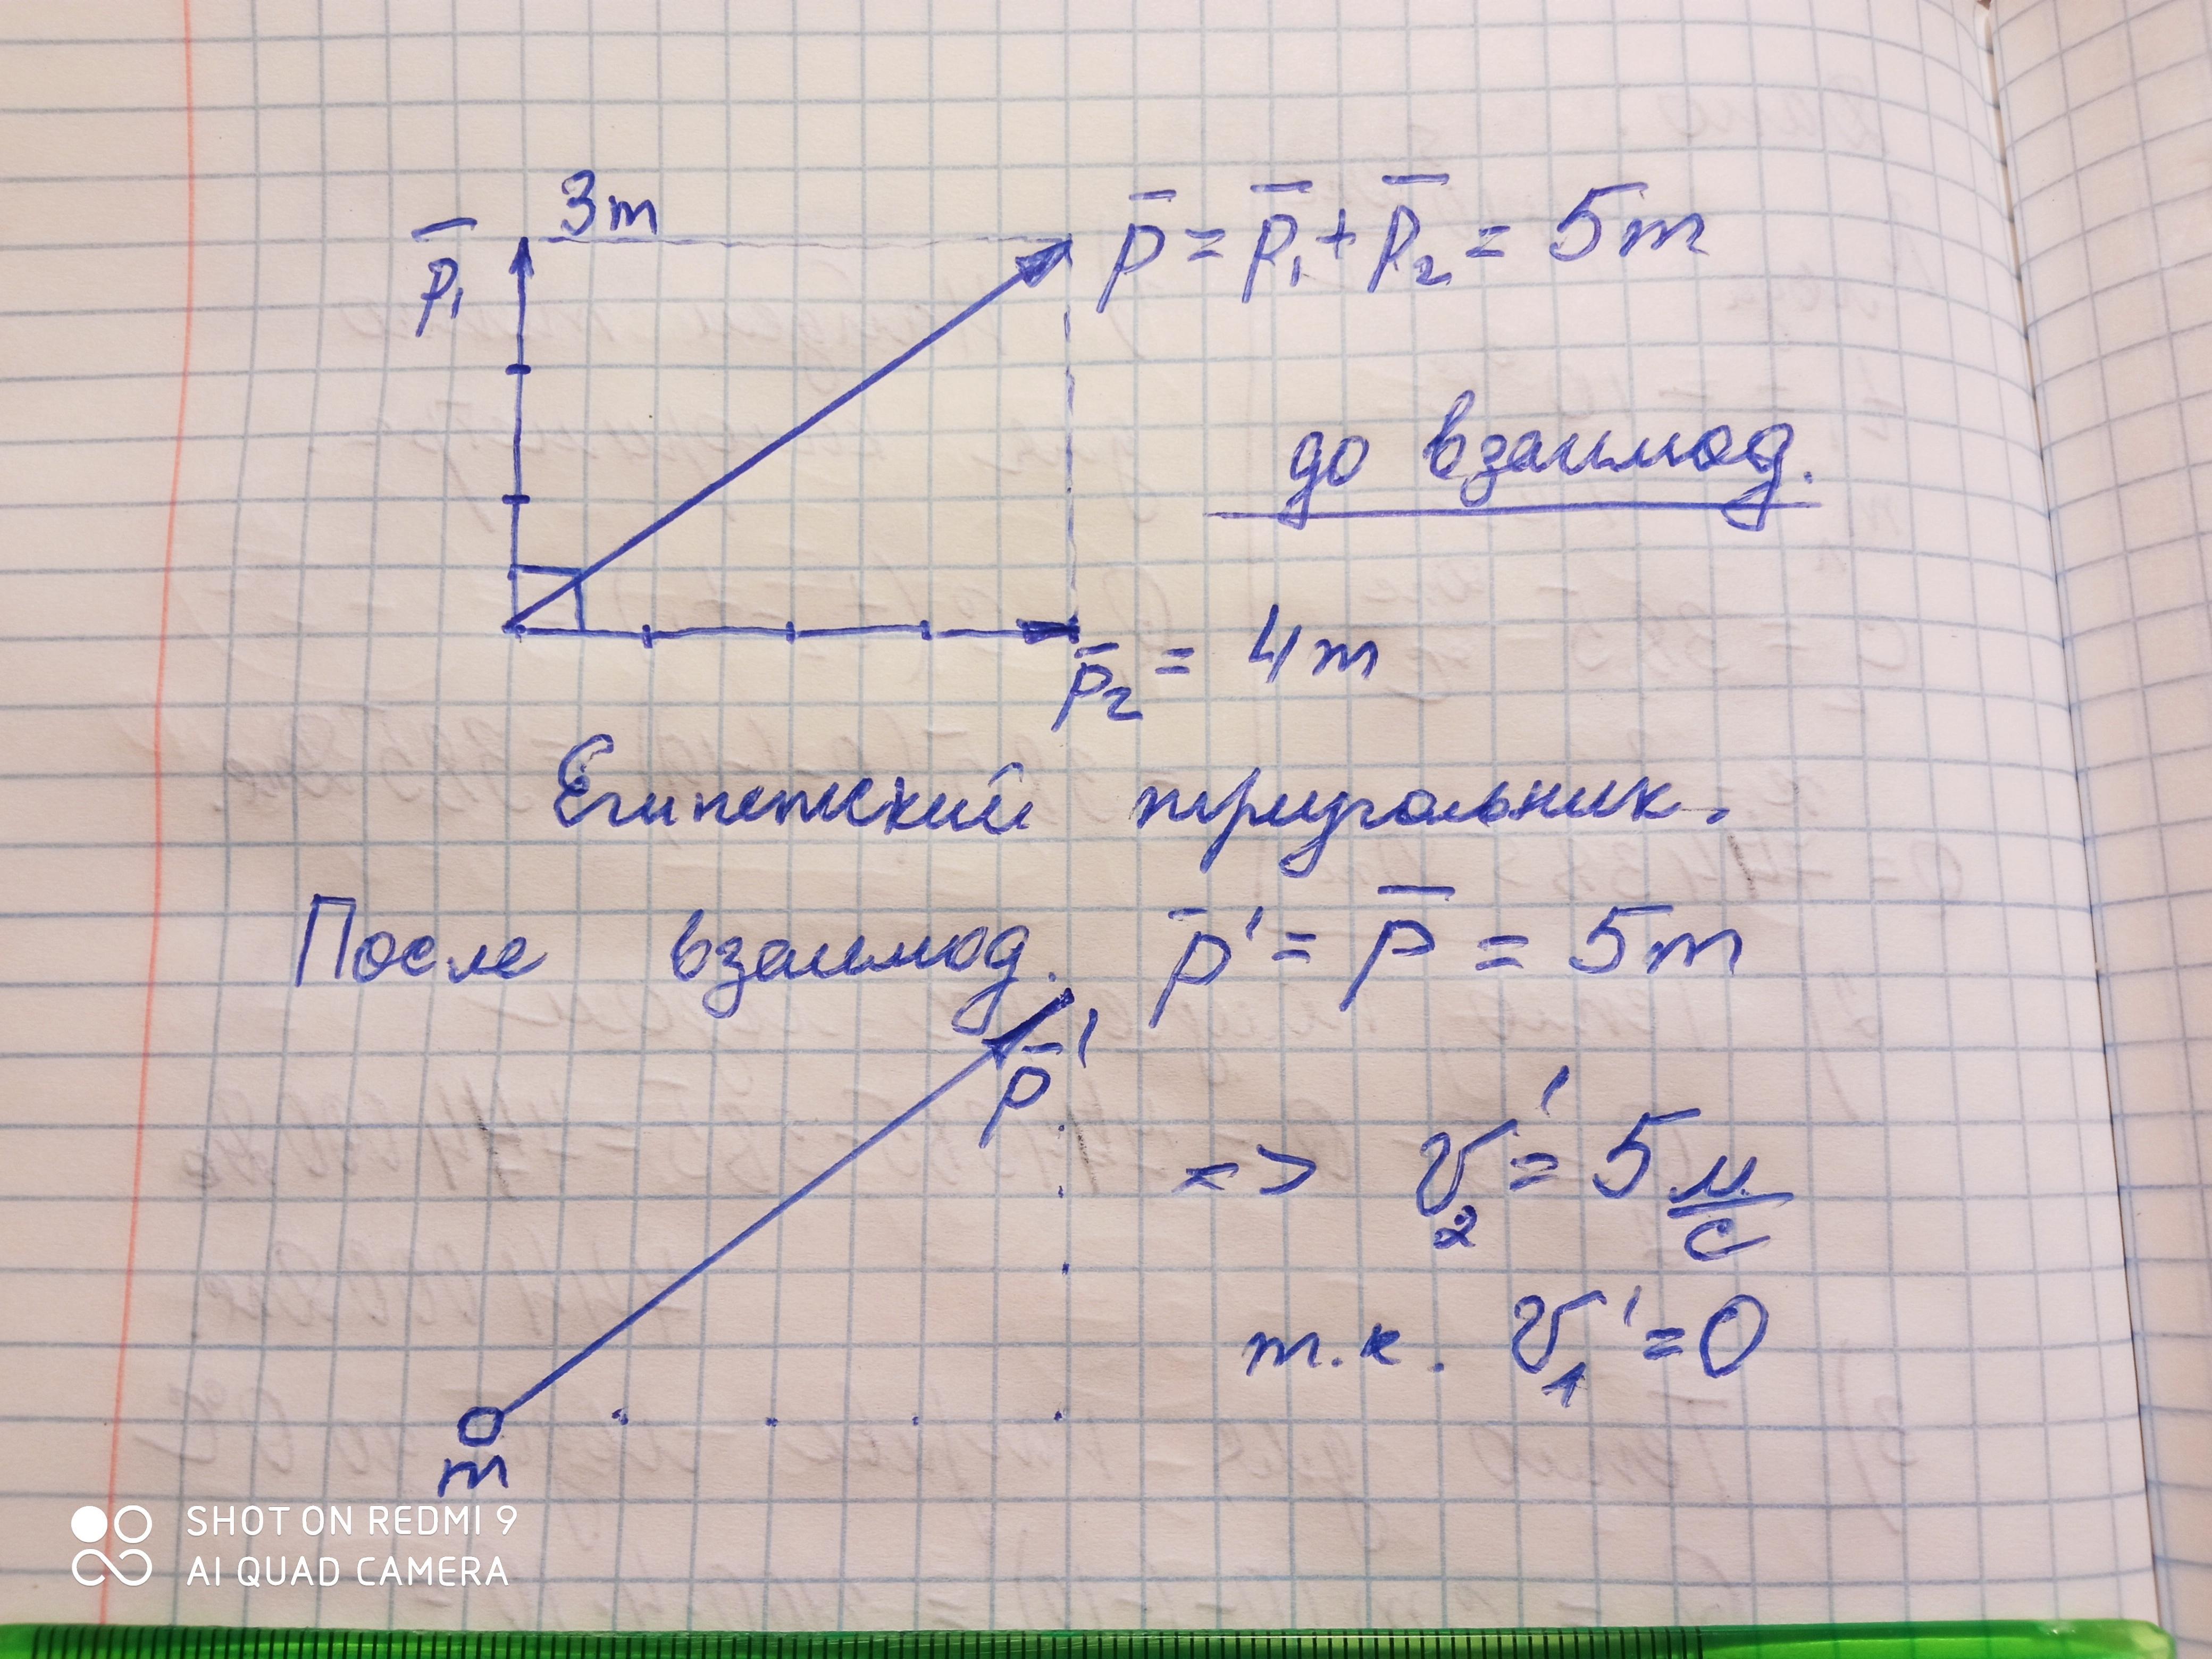 3m
p̅₁
p̅ = p̅₁ + p̅₂ = 5m
до взаимод.
p̅₂ = 4m
Египетский треугольник.
После взаимод. p̅' = p̅ = 5m
p̅'
=> v₂' = 5 м/с
т.к. v₁' = 0
m
SHOT ON REDMI 9
AI QUAD CAMERA